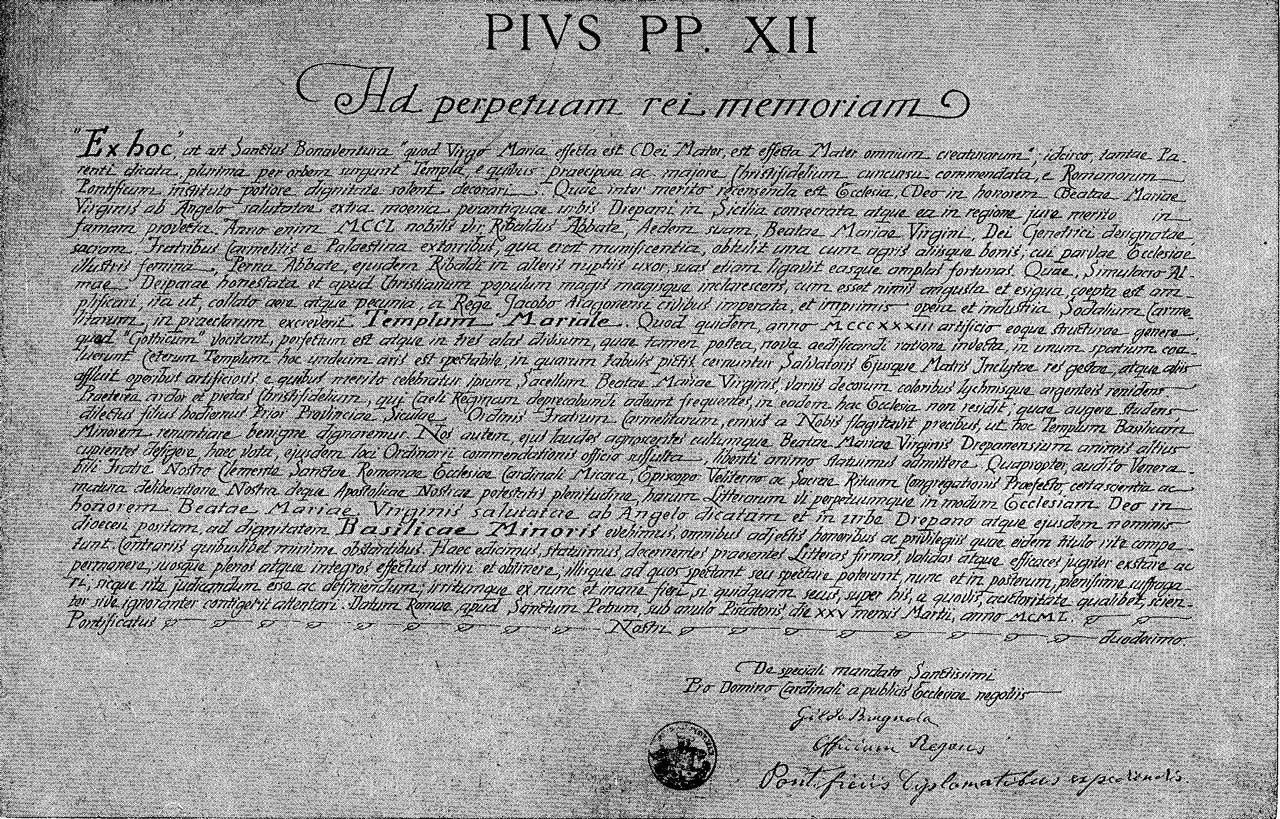 PIVS PP. XII
Ad perpetuam rei memoriam
"Ex hoc", ut ait Sanctus Bonaventura "quod Virgo Maria effecta est Dei Mater, est effecta Mater omnium creaturarum"; idcirco, tantae Pa-
renti dicata, plurima per orbem surgunt Templa, e quibus praecipua ac majore Christifidelium concursu commendata, e Romanorum
Pontificum instituto potiore dignitate solent decorari. Quae inter merito recensenda est Ecclesia, Deo in honorem Beatae Mariae
Virginis ab Angelo salutatae extra moenia perantiquae urbis Drepani in Sicilia consecrata atque ea in regione jure merito in
famam provecta. Anno enim MCCL nobilis vir Ribaldus Abbate, Aedem suam, Beatae Mariae Virgini, Dei Genetrici designatae,
sacram, Fratribus Carmelitis e Palaestina extorribus, qua erat munificentia, obtulit una cum agris aliisque bonis, cui parvae Ecclesiae
illustris femina, Perna Abbate, ejusdem Ribaldi in alteris nuptiis uxor, suas etiam ligavit easque amplas fortunas. Quae, Simulacro Al-
mae Deiparae honestata et apud Christianum populum magis magisque inclarescens, cum esset nimis angusta et exigua, coepta est am-
plificari, ita ut, collato aere atque pecunia, a Rege Jacobo Aragonensi civibus imperata, et imprimis opera et industria Sodalium Carme-
litarum, in praeclarum excreverit Templum Mariale. Quod quidem, anno MCCCXXXIII artificio eoque structurae genere
quod "Gothicum" vocitant, perfectum est atque in tres alas divisum, quae tamen postea, nova aedificandi ratione invecta, in unum spatium coa-
luerunt. Ceterum Templum hoc undecim aris est spectabile, in quarum tabulis pictis cernuntur Salvatoris Ejusque Matris Inclytae res gestae, atque aliis
affluit operibus artificiosis, e quibus merito celebratur ipsum Sacellum Beatae Mariae Virginis, variis decorum coloribus lychnisque argenteis renidens.
Praeterea ardor et pietas Christifidelium, qui Caeli Reginam deprecabundi adeunt frequentes, in eadem hac Ecclesia non residit, quae augere studens
dilectus filius hodiernus Prior Provinciae Siculae Ordinis Fratrum Carmelitarum, enixis a Nobis flagitavit precibus, ut hoc Templum Basilicam
Minorem renuntiare benigne dignaremur. Nos autem, ejus laudes agnoscentes cultumque Beatae Mariae Virginis Drepanensium animis altius
cupientes defigere, haec vota, ejusdem loci Ordinarii commendationis officio suffulta, libenti animo statuimus admittere. Quapropter, audito Venera-
bili Fratre Nostro Clemente Sanctae Romanae Ecclesiae Cardinali Micara, Episcopo Veliterno ac Sacrae Rituum Congregationis Praefecto, certa scientia ac
matura deliberatione Nostra deque Apostolicae Nostrae potestatis plenitudine, harum Litterarum vi perpetuumque in modum Ecclesiam Deo in
honorem Beatae Mariae Virginis salutatae ab Angelo dicatam et in urbe Drepano atque ejusdem nominis
dioecesi positam, ad dignitatem Basilicae Minoris evehimus, omnibus adjectis honoribus ac privilegiis quae eidem titulo rite compe-
tunt. Contrariis quibuslibet minime obstantibus. Haec edicimus, statuimus, decernentes praesentes Litteras firmas, validas atque efficaces jugiter exstare ac
permanere, suosque plenos atque integros effectus sortiri et obtinere, illisque ad quos spectant seu spectare poterunt, nunc et in posterum, plenissime suffraga-
ri; sicque rite judicandum esse ac definiendum; irritumque ex nunc et inane fieri, si quidquam secus, super his, a quovis, auctoritate qualibet, scien-
ter sive ignoranter contigerit attentari. Datum Romae, apud Sanctum Petrum, sub anulo Piscatoris, die XXV mensis Martii, anno MCML.
Pontificatus Nostri duodecimo.
De speciali mandato Sanctissimi
Pro Domino Cardinali a publicis Ecclesiae negotiis
Gildo Brugnola
Officium Regens
Pontificiis Diplomatibus expediendis.